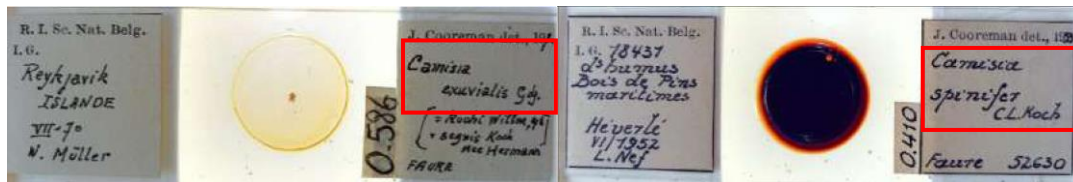 R. I. Sc. Nat. Belg.
I. G.
Reykjavik
ISLANDE
VII-70
W. Müller
0.586
J. Cooreman det., 19
Camisia
exuvialis Grj.
segnis Koch
nec Hermann
FAURE
R. I. Sc. Nat. Belg.
I. G. 18437
ds humus
Bois de Pins
maritimes
Héverlé
VI/1952
L. Nef
0.410
J. Cooreman det., 19
Camisia
spinifer
C.L. Koch
Faure 52630